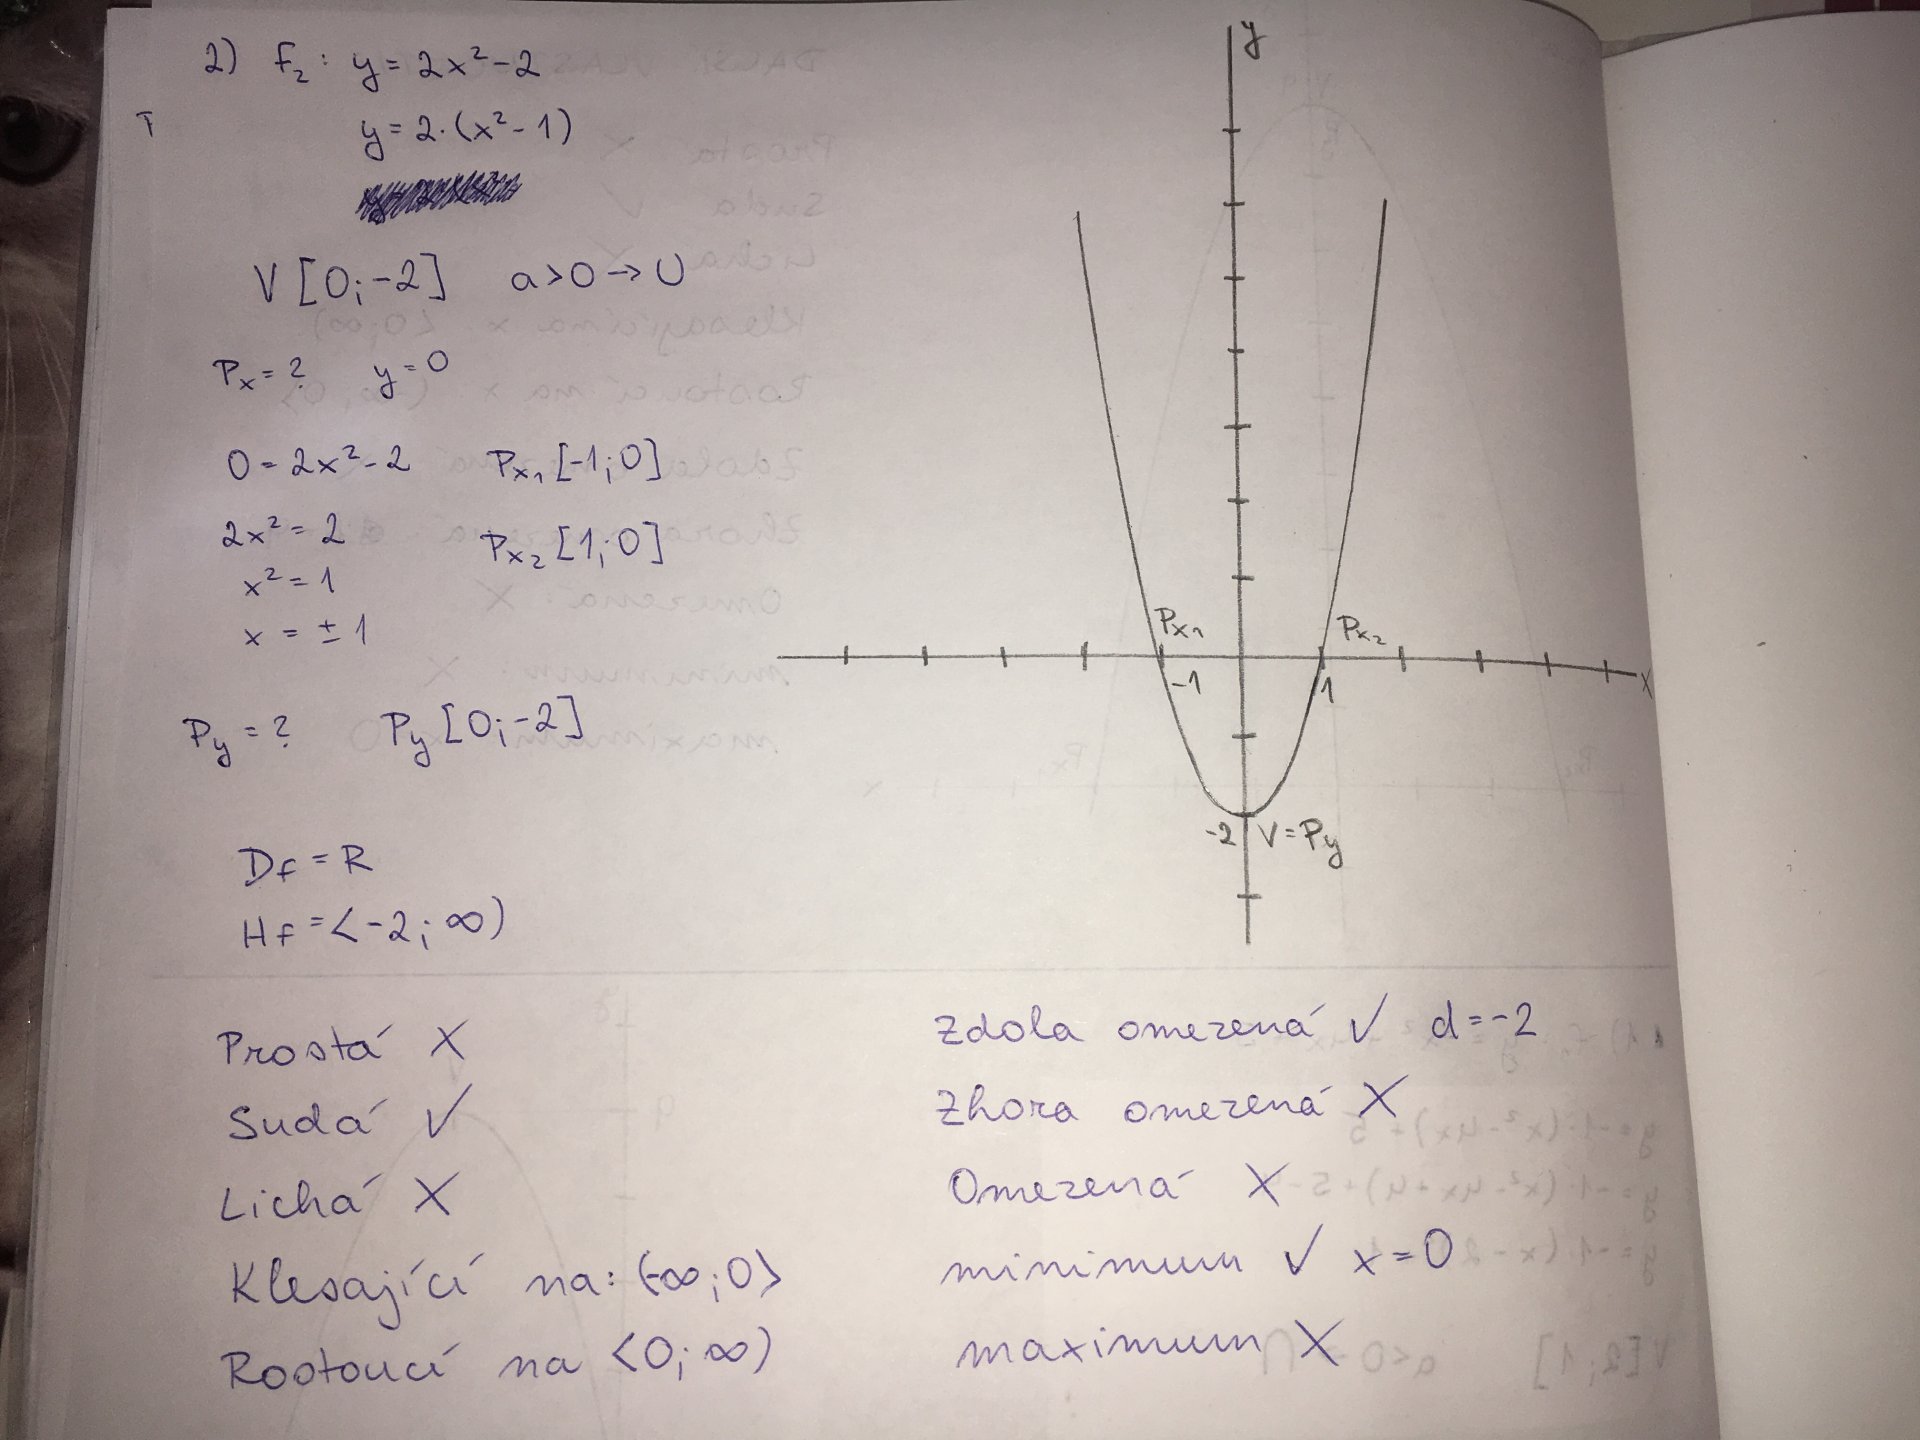 2) f₂: y = 2x² - 2
y = 2·(x² - 1)
V [0; -2] a > 0 → ∪
Pₓ = ? y = 0
0 = 2x² - 2 Pₓ₁ [-1; 0]
2x² = 2 Pₓ₂ [1; 0]
x² = 1
x = ± 1
Py = ? Py [0; -2]
Df = R
Hf = <-2; ∞)
y
Pₓ₁ Pₓ₂
-1 1 x
-2 V = Py
Prostá X
Sudá ✓
Lichá X
Klesající na: (-∞; 0>
Rostoucí na <0; ∞)
Zdola omezená ✓ d = -2
Zhora omezená X
Omezená X
minimum ✓ x = 0
maximum X